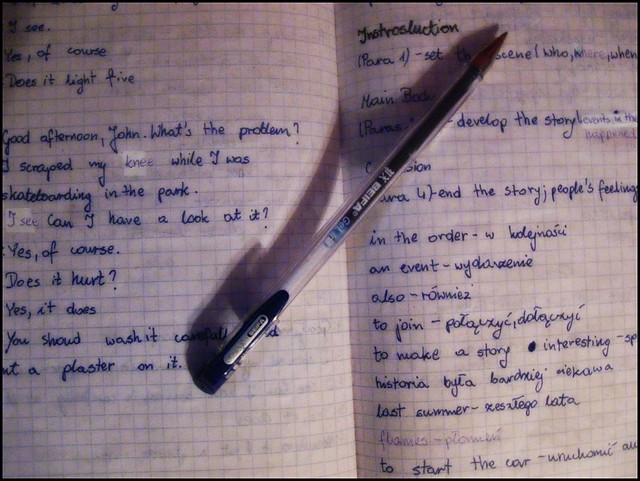 I see.
Yes, of course
Does it light five
Good afternoon, John. What's the problem?
I scraped my knee while I was
skateboarding in the park.
I see Can I have a look at it?
Yes, of course.
Does it hurt?
Yes, it does
You shoud wash it
a plaster on it.
Instroduction
(Para 1) - set scene (who, where, when
Main
(Paras. - develop the story (events in the
happened
4) - end the story; people's feeling
in the order - w kolejności
an event - wydarzenie
also - również
to join - połączyć, dołączyć
to make a story interesting - sp
historia była bardziej ciekawa
last summer - zeszłego lata
flames - płomień
to start the car - uruchomić au
BEIFA